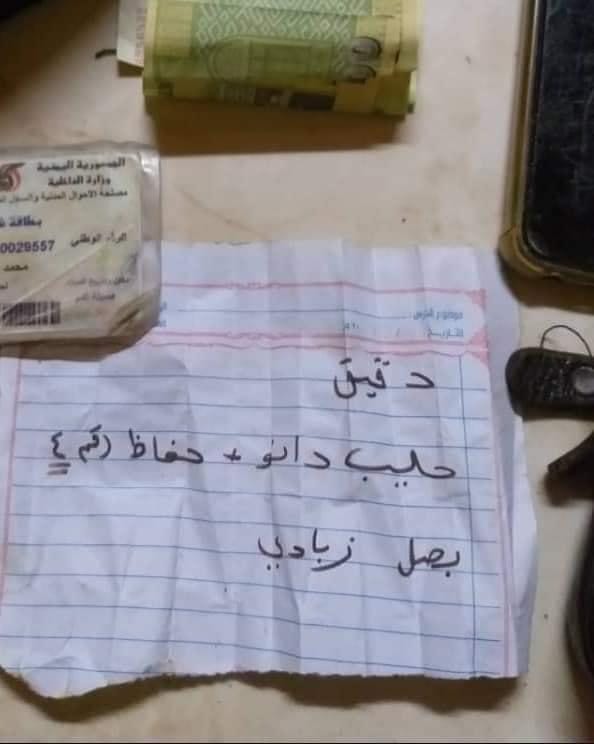 الجمهورية اليمنية
وزارة الداخلية
مصلحة الاحوال المدنية والسجل
بطاقة
الرقم الوطني 0029557
محمد
فصيلة الدم
موضوع الدرس
التاريخ / /
دقيق
حليب دانو + حفاظ رقم ٤
بصل زبادي